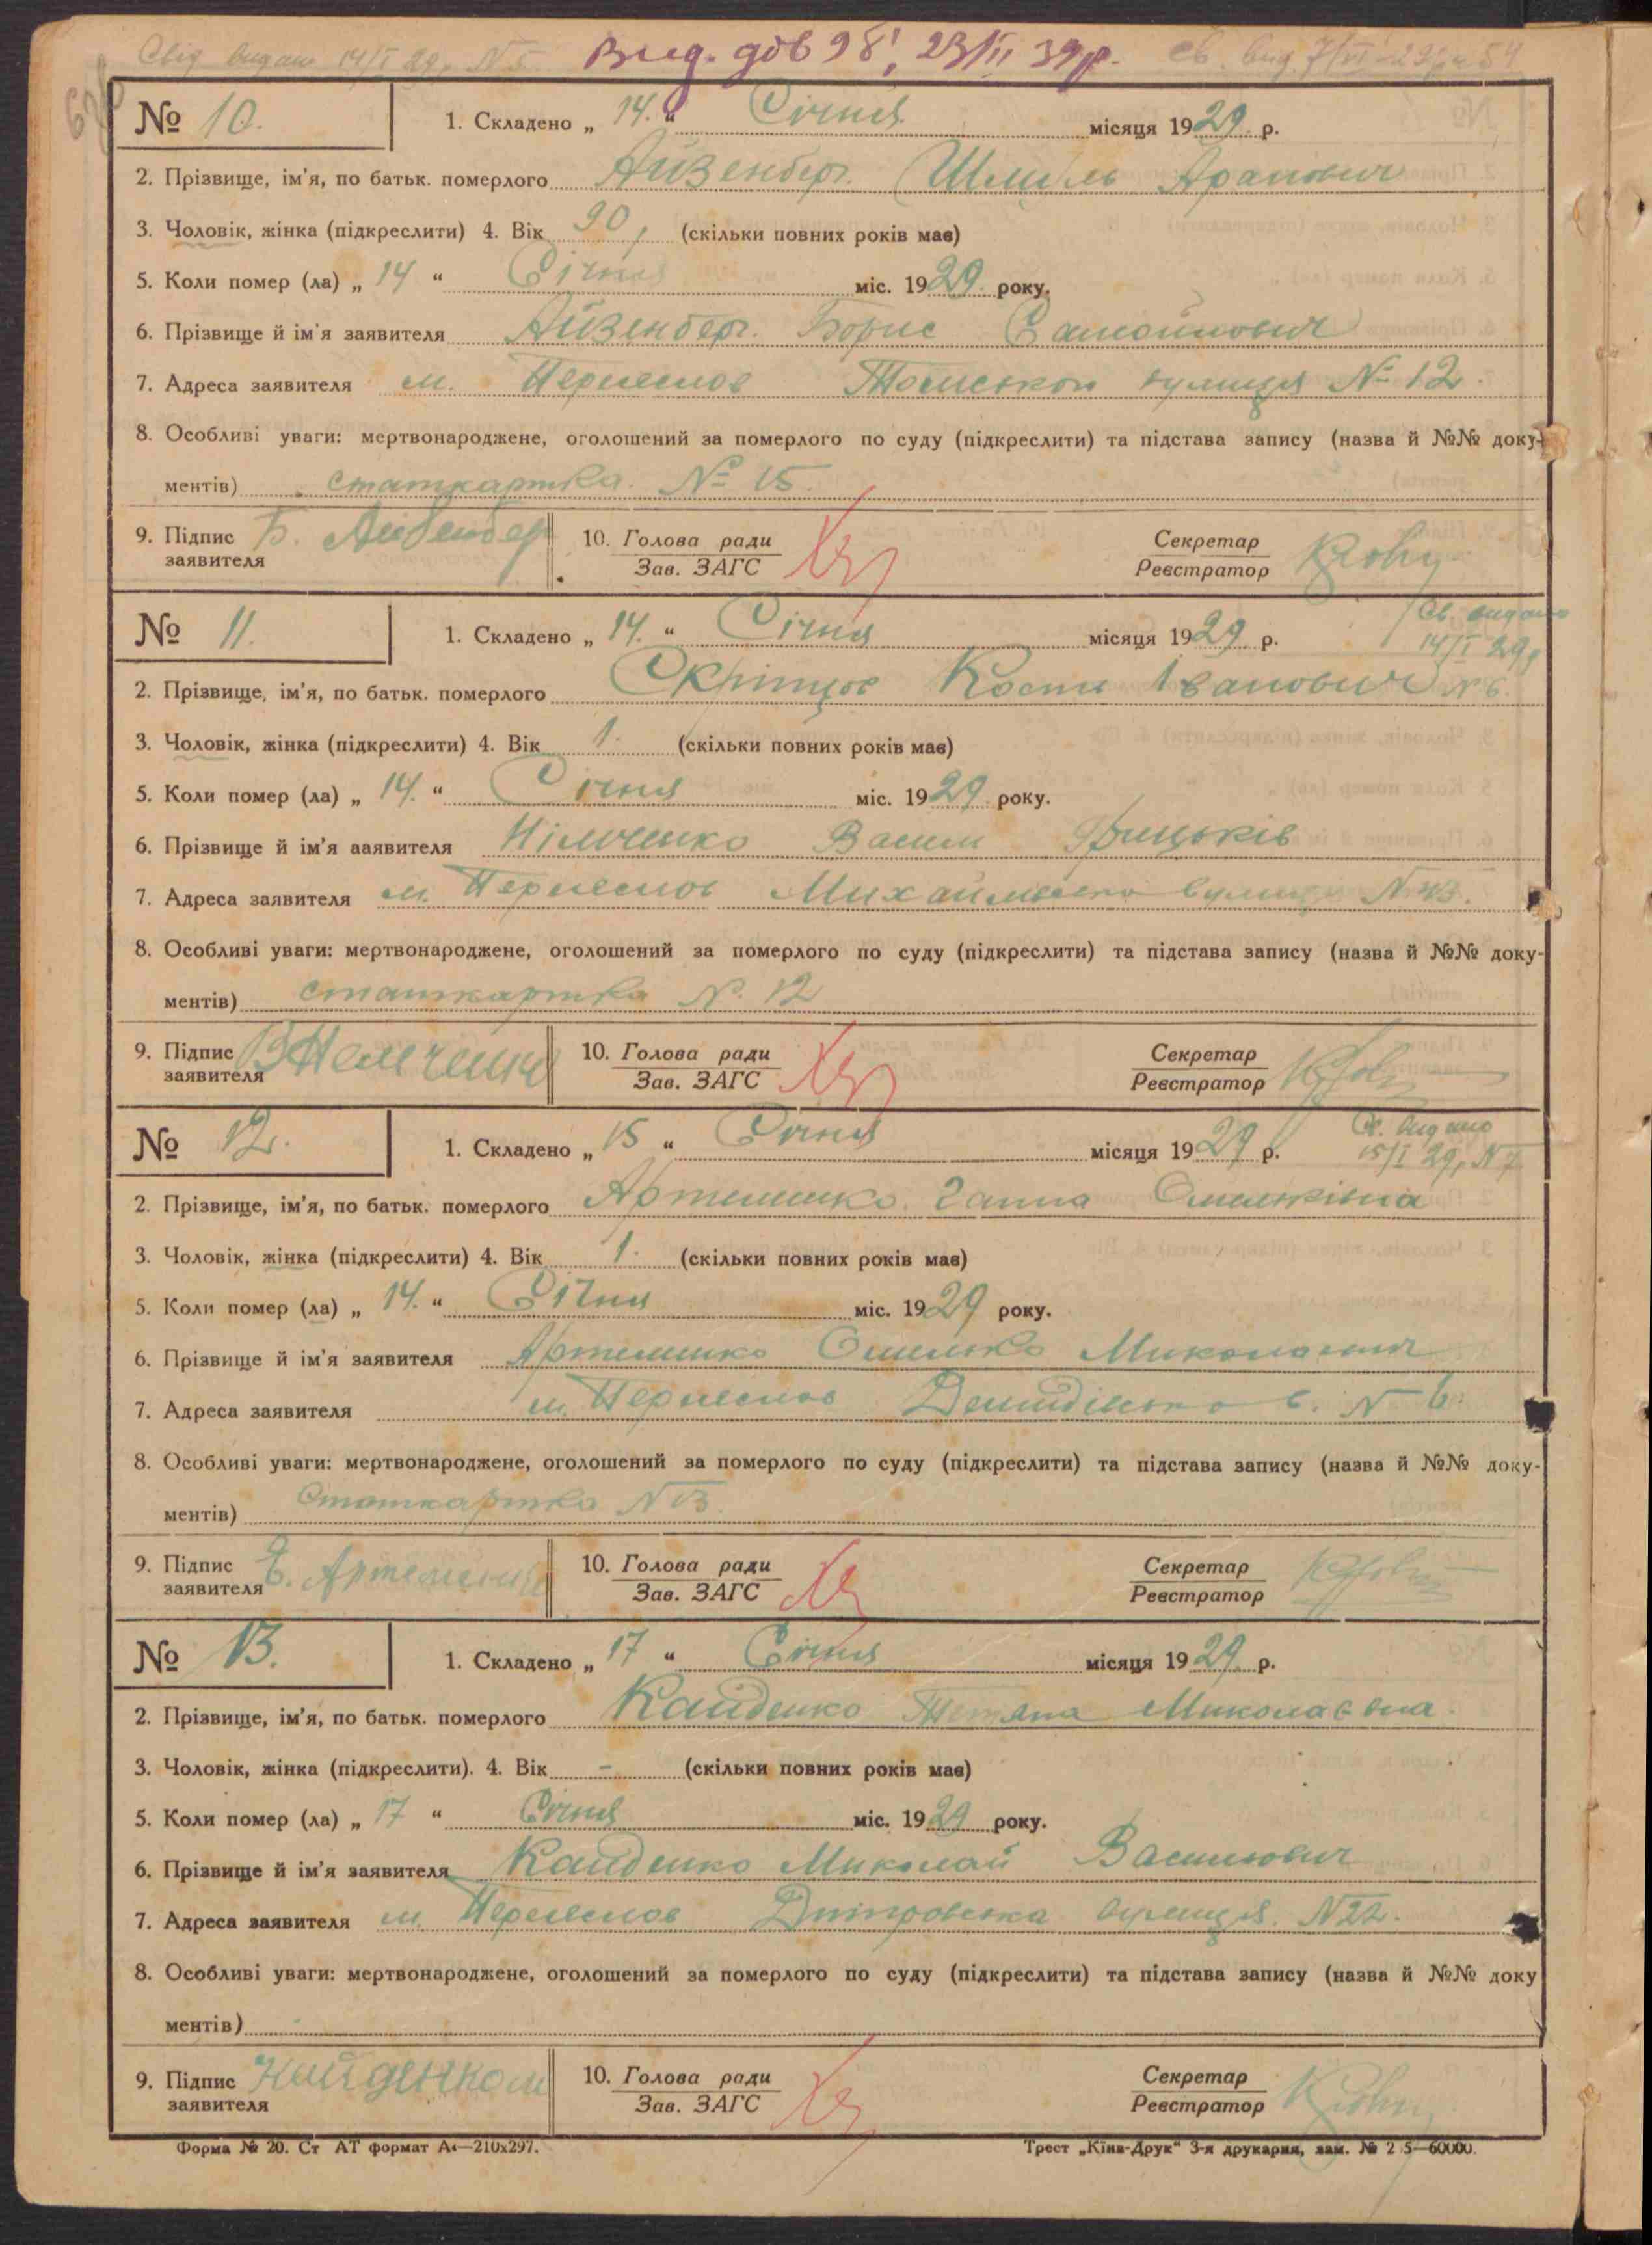 Свід. видано 14/I 29р. N 5. Вид. доб 98, 23/II 39р. Св. вид. 7/VI-29р. № 54
№ 10. 1. Складено „ 14. “ Січня місяця 1929. р.
2. Прізвище, ім'я, по батьк. померлого Айзенберг. Шмуль Аранович
3. Чоловік, жінка (підкреслити) 4. Вік 90, (скільки повних років має)
5. Коли помер (ла) „ 14 “ Січня міс. 1929. року.
6. Прізвище й ім'я заявителя Айзенберг. Борис Самойлович
7. Адреса заявителя м. Переяслов вулиця № 12.
8. Особливі уваги: мертвонароджене, оголошений за померлого по суду (підкреслити) та підстава запису (назва й №№ доку-
ментів) статкартка. № 15.
9. Підпис Б. Айзенбер 10. Голова ради Секретар
заявителя Зав. ЗАГС Реєстратор
№ 11. 1. Складено „ 14. “ Січня місяця 1929 р. Св. видано
14/I 29р
2. Прізвище, ім'я, по батьк. померлого Скріпцов Костя Іванович N 6.
3. Чоловік, жінка (підкреслити) 4. Вік 1. (скільки повних років має)
5. Коли помер (ла) „ 14. “ Січня міс. 1929. року.
6. Прізвище й ім'я ааявителя Нільченко Василь Грицьків
7. Адреса заявителя м. Переяслов Михайлівська вулиця
8. Особливі уваги: мертвонароджене, оголошений за померлого по суду (підкреслити) та підстава запису (назва й №№ доку-
ментів) статкартка N. 12
9. Підпис ВНельченко 10. Голова ради Секретар
заявителя Зав. ЗАГС Реєстратор
№ 12. 1. Складено „ 15 “ Січня місяця 1929 р. Св. видано
15/I 29р N 7
2. Прізвище, ім'я, по батьк. померлого Артеменко. Ганна Омельківна
3. Чоловік, жінка (підкреслити) 4. Вік 1. (скільки повних років має)
5. Коли помер (ла) „ 14. “ Січня міс. 1929 року.
6. Прізвище й ім'я заявителя Артеменко Омелько Миколаович
7. Адреса заявителя м. Переяслов Демидівська в. N 6.
8. Особливі уваги: мертвонароджене, оголошений за померлого по суду (підкреслити) та підстава запису (назва й №№ доку-
ментів) Статкартка N 13.
9. Підпис Е. Артеменко 10. Голова ради Секретар
заявителя Зав. ЗАГС Реєстратор
№ 13. 1. Складено „ 17 “ Січня місяця 1929. р.
2. Прізвище, ім'я, по батьк. померлого Кайденко Тетяна Миколаєвна.
3. Чоловік, жінка (підкреслити). 4. Вік - (скільки повних років має)
5. Коли помер (ла) „ 17 “ Січня міс. 1929 року.
6. Прізвище й ім'я заявителя Кайденко Миколай Васильович
7. Адреса заявителя м. Переяслов Дніпровська вулиця. N 22.
8. Особливі уваги: мертвонароджене, оголошений за померлого по суду (підкреслити) та підстава запису (назва й №№ доку
ментів)
9. Підпис 10. Голова ради Секретар
заявителя Зав. ЗАГС Реєстратор
Форма № 20. Ст АТ формат А4—210х297. Трест „Київ-Друк“ 3-я друкарня, зам. № 2 5—60000.